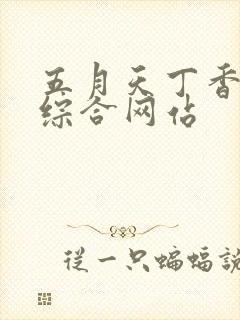 五月天丁香
综合网站
從一只蝙蝠説